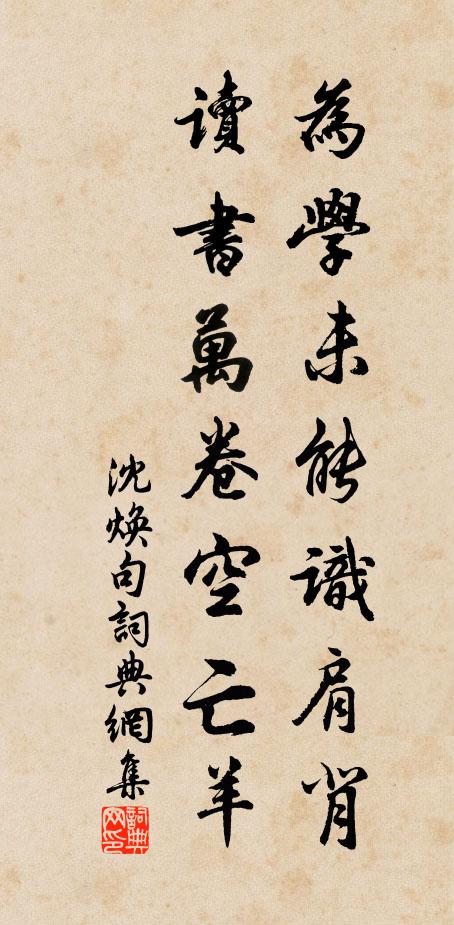 為學未能識肩背
讀書萬卷空亡羊
沈煥句詞典網集
詞典網印